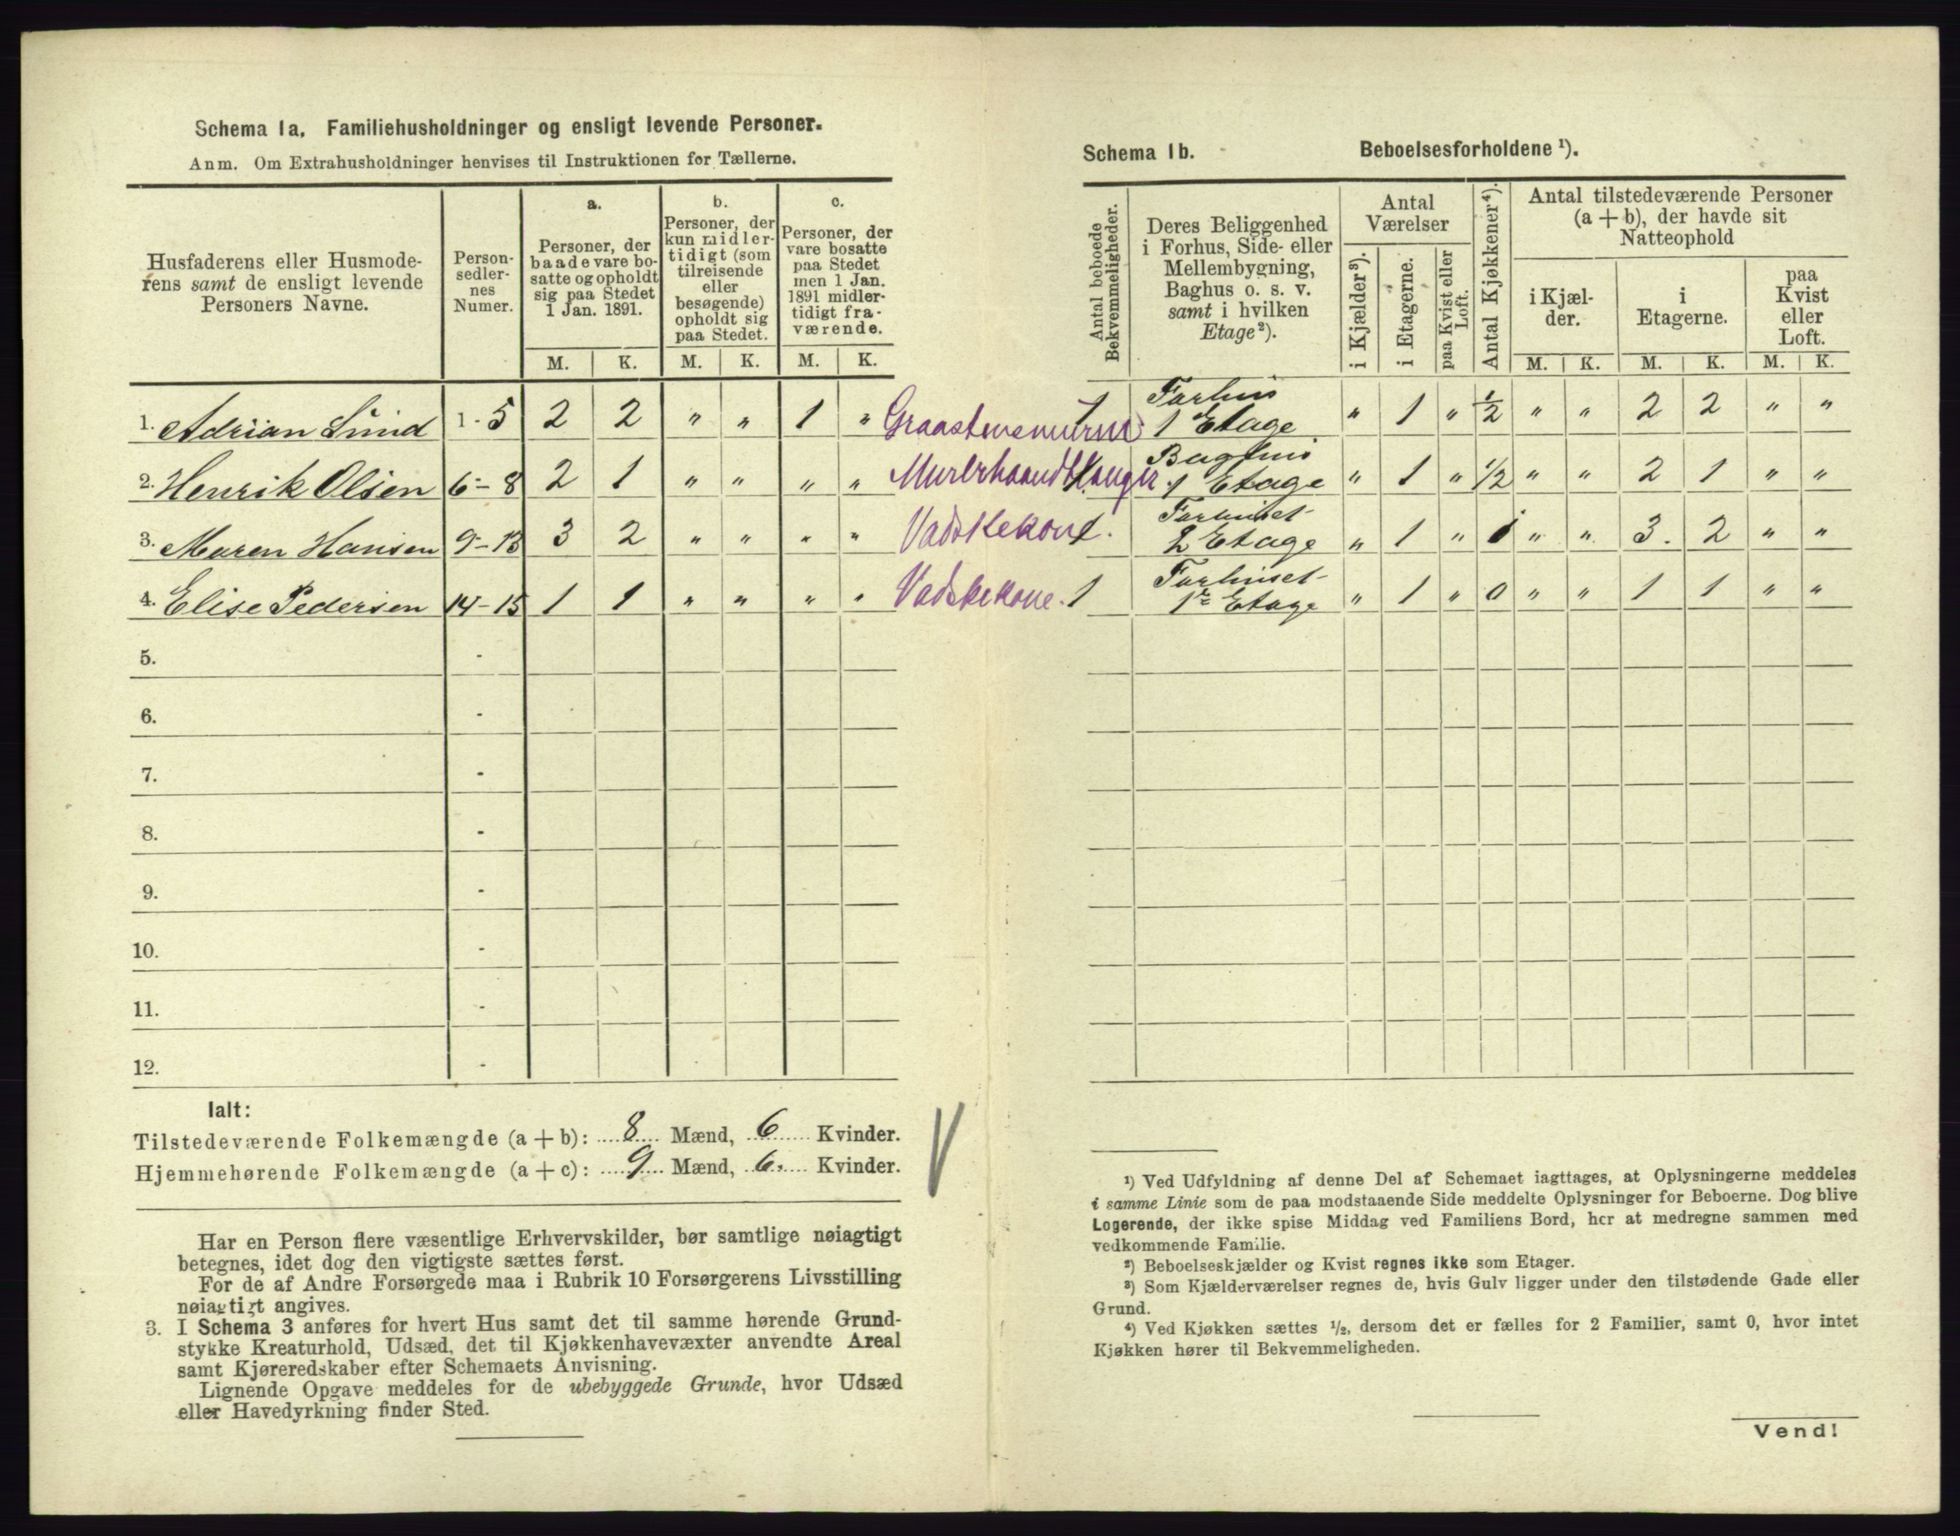 Schema 1a. Familiehusholdninger og ensligt levende Personer.
Anm. Om Extrahusholdninger henvises til Instruktionen for Tællerne.
Husfaderens eller Husmode-
rens samt de ensligt levende
Personers Navne.
Person-
sedler-
nes
Numer.
a.
Personer, der
baade vare bo-
satte og opholdt
sig paa Stedet
1 Jan. 1891.
b.
Personer, der
kun midler-
tidigt (som
tilreisende
eller
besøgende)
opholdt sig
paa Stedet.
c.
Personer, der
vare bosatte
paa Stedet
men 1 Jan.
1891 midler-
tidigt fra-
værende.
M. K. M. K. M. K.
1. Adrian Lund 1 - 5 2 2 " " 1 "
2. Henrik Olsen 6 - 8 2 1 " " " " Murerhaandtlanger.
3. Maren Hansen 9 - 13 3 2 " " " " Vadskekone.
4. Elise Pedersen 14 - 15 1 1 " " " " Vadskekone.
5. -
6. -
7. -
8. -
9. -
10. -
11. -
12. -
Ialt:
Tilstedeværende Folkemængde (a + b): 8 Mænd, 6 Kvinder.
Hjemmehørende Folkemængde (a + c): 9 Mænd, 6. Kvinder.
Har en Person flere væsentlige Erhvervskilder, bør samtlige nøiagtigt
betegnes, idet dog den vigtigste sættes først.
For de af Andre Forsørgede maa i Rubrik 10 Forsørgerens Livsstilling
nøiagtigt angives.
3. I Schema 3 anføres for hvert Hus samt det til samme hørende Grund-
stykke Kreaturhold, Udsæd, det til Kjøkkenhavevæxter anvendte Areal
samt Kjøreredskaber efter Schemaets Anvisning.
Lignende Opgave meddeles for de ubebyggede Grunde, hvor Udsæd
eller Havedyrkning finder Sted.
Schema 1b. Beboelsesforholdene ¹).
Antal beboede
Bekvemmeligheder.
Deres Beliggenhed
i Forhus, Side- eller
Mellembygning,
Baghus o. s. v.
samt i hvilken
Etage²).
Antal
Værelser
i Kjælder³).
i Etagerne.
paa Kvist eller
Loft.
Antal Kjøkkener⁴).
Antal tilstedeværende Personer
(a + b), der havde sit
Natteophold
i Kjæl-
der.
i
Etagerne.
paa
Kvist
eller
Loft.
M. K. M. K. M. K.
1 Forhus
1 Etage " 1 " 1/2 " " 2 2 " "
1 Baghus
1 Etage " 1 " 1/2 " " 2 1 " "
1 Forhuset
2 Etage " 1 " 1 " " 3. 2 " "
1 Forhuset
1ste Etage " 1 " 0 " " 1 1 " "
¹) Ved Udfyldning af denne Del af Schemaet iagttages, at Oplysningerne meddeles
i samme Linie som de paa modstaaende Side meddelte Oplysninger for Beboerne. Dog blive
Logerende, der ikke spise Middag ved Familiens Bord, her at medregne sammen med
vedkommende Familie.
²) Beboelseskjælder og Kvist regnes ikke som Etager.
³) Som Kjælderværelser regnes de, hvis Gulv ligger under den tilstødende Gade eller
Grund.
⁴) Ved Kjøkken sættes ½, dersom det er fælles for 2 Familier, samt 0, hvor intet
Kjøkken hører til Bekvemmeligheden.
Vend!